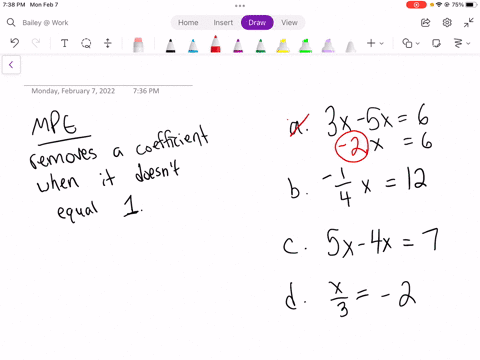 7:38 PM Mon Feb 7
75%
Bailey @ Work
Home
Insert
Draw
View
Monday, February 7, 2022 7:36 PM
MPE
removes a coefficient
when it doesn't
equal 1.
a. 3x - 5x = 6
-2x = 6
b. -1/4 x = 12
c. 5x - 4x = 7
d. x/3 = -2